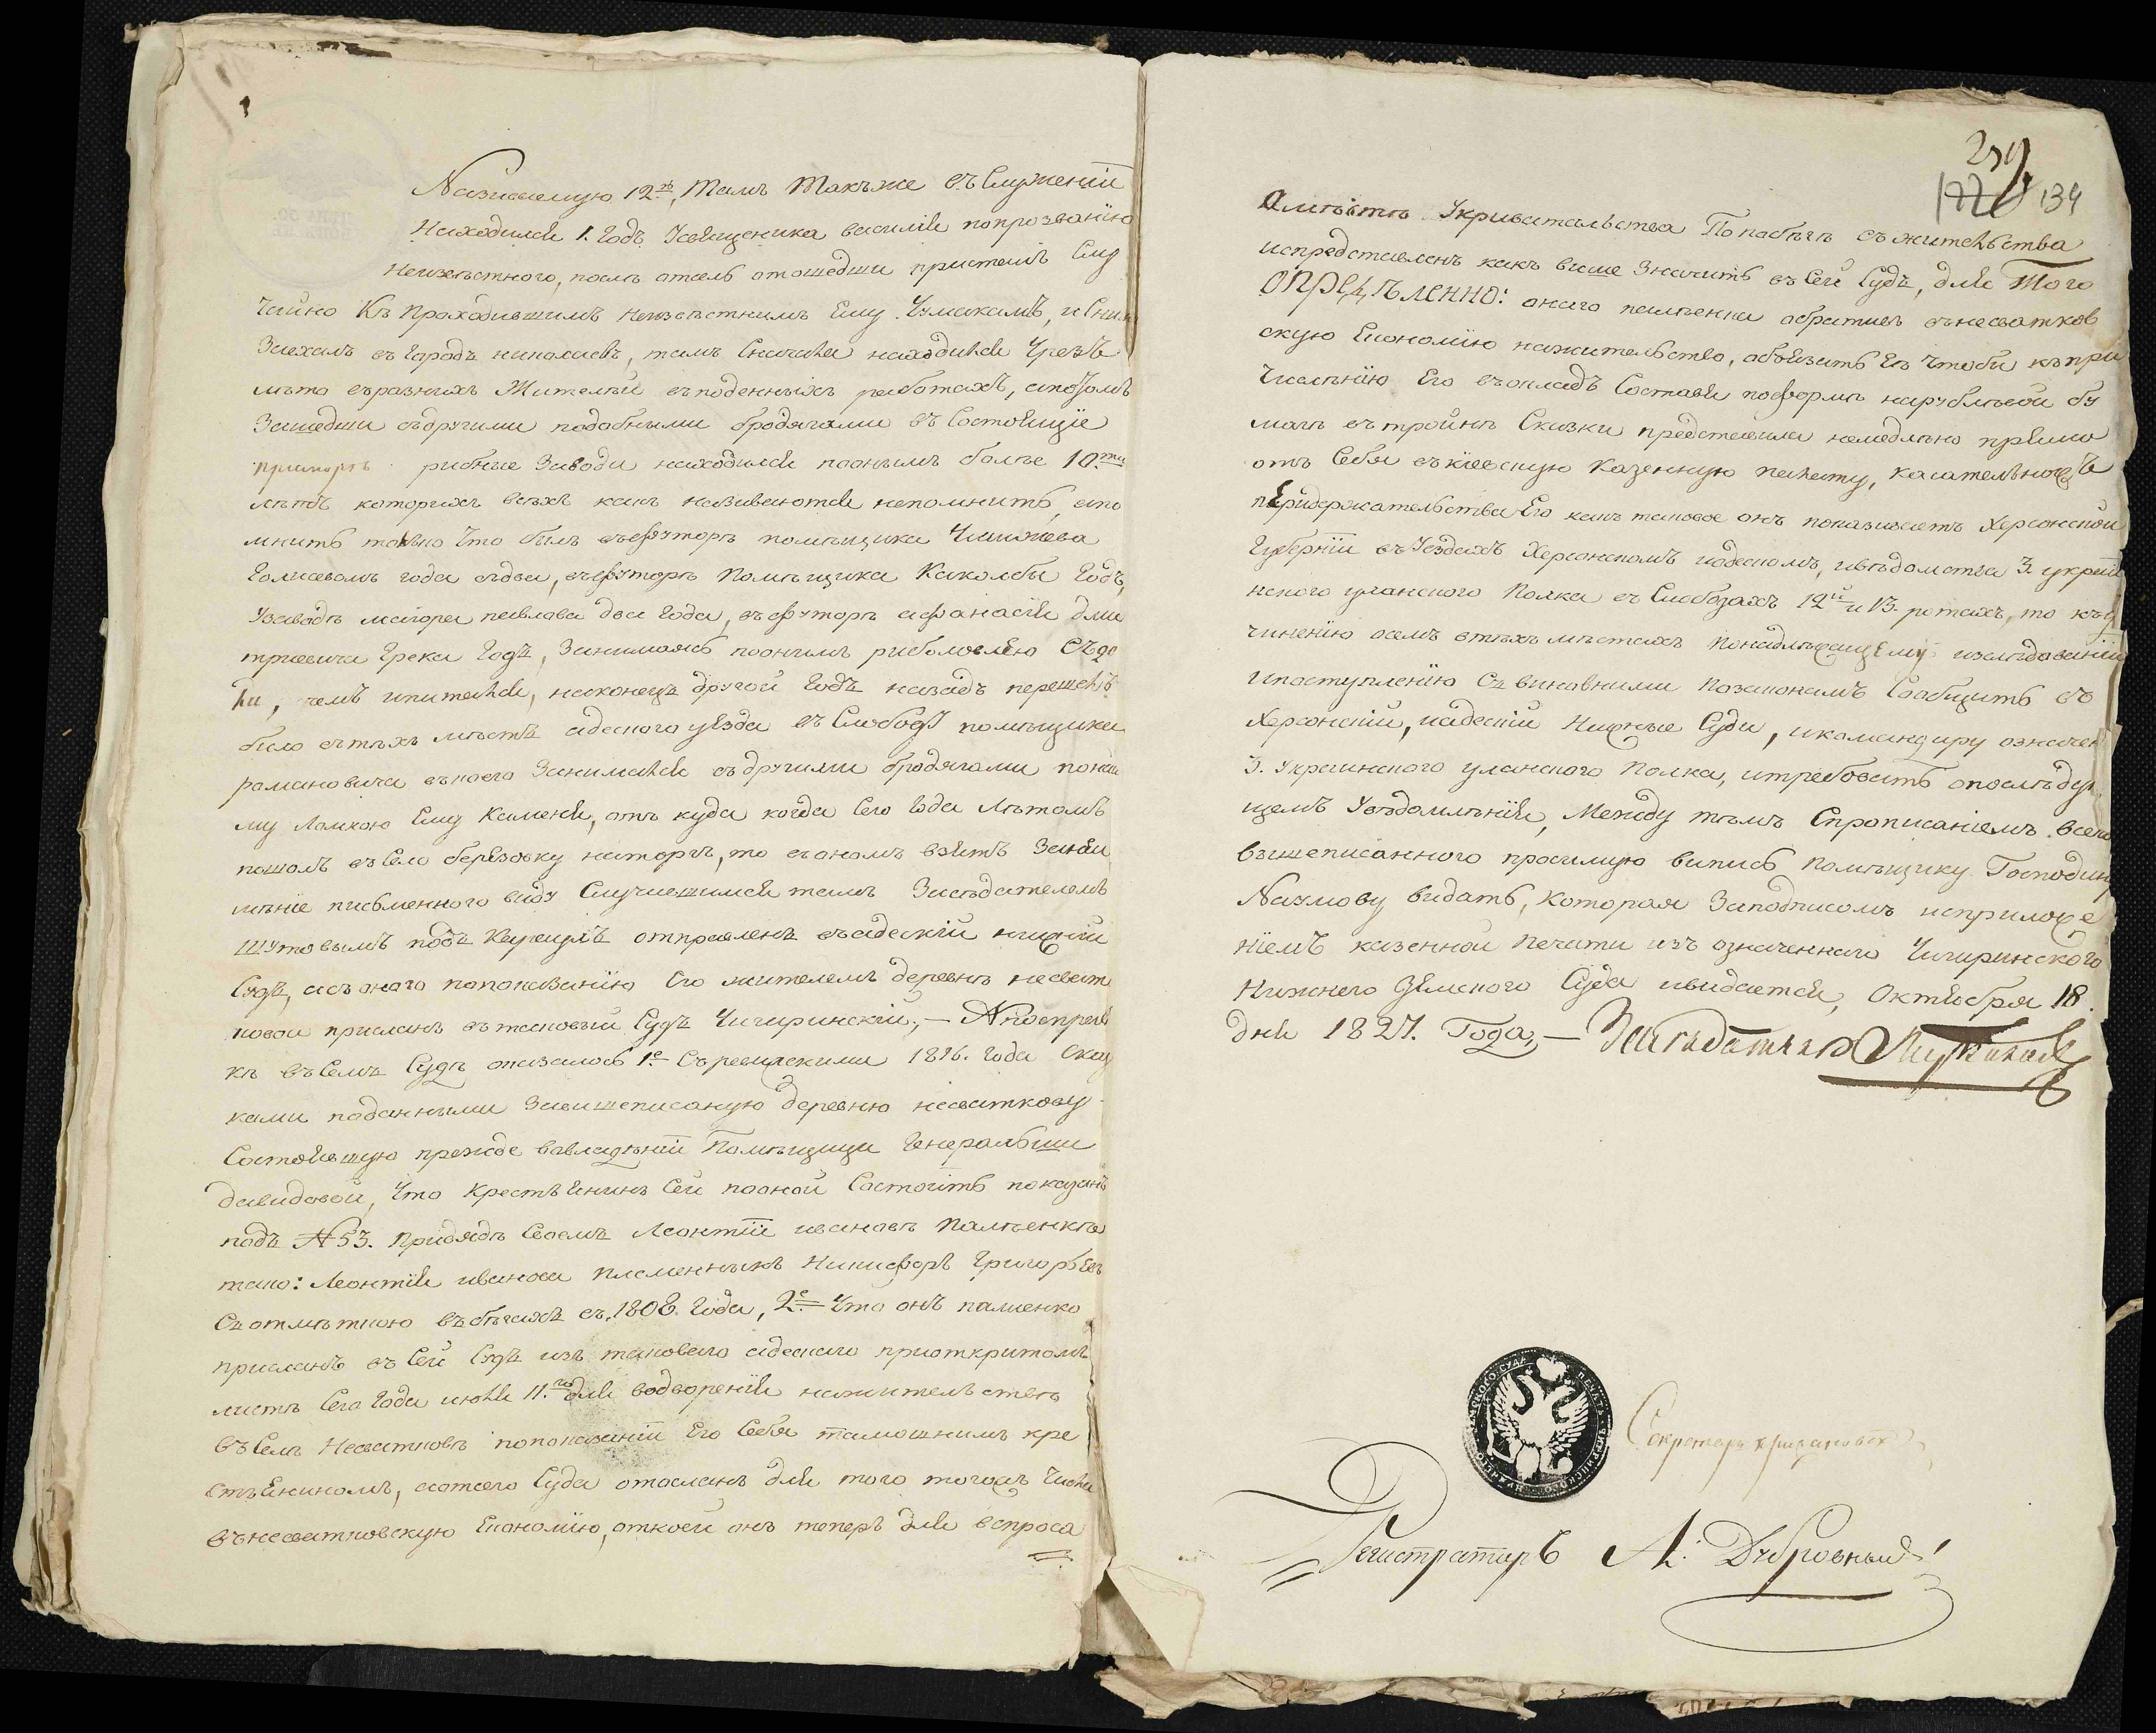 Называемую 12я, тамъ также въ служеніи
находился 1. годъ, Усвященика василія попрозванію
неизвестного, посль отсель отошедши присталъ слу
чайно Къ проходившимъ неизвѣстнимъ Ему Чумакамъ, и Сними
Заехалъ въ городъ николаевъ, тамъ Сначала находился Чрезъ
лѣто въразнихъ Жителѣй въподеннихъ работахъ, апотомъ
Зашедши съдругими подобными бродягами въ Состоящіе
риобніе Заводи находился поонымъ болѣе 10.ти
лѣтъ которихъ всѣхъ какъ називаются непомнитъ, апо
мнитъ только Что былъ въфуторѣ помѣщика
года съдва, въфуторѣ Помѣщика Годъ,
Узаводѣ маіора павлова два года, въфуторѣ афанасія дми
тріевича Грека Годъ, Занимаясь поонымъ риболовлею
чемъ ипитался, наконецъ другой годъ назадъ перешелъ
било вътѣхъ мѣстъ адеского уѣзда въ Слободу помѣщика
романовича въкоего Занимался съдругими бродягами
му Ломкою Ему Каменя, отъ куда когда Сего года Лѣтомъ
пошолъ въ Село берѣзовку наторгъ, то въономъ взятъ Занеи
мѣніе писменного виду Случившимся тамъ Засѣдателемъ
Шутовымъ подъ Караулъ отправленъ въадескій нижній
Судъ, асъ оного попоказанію Его жителемъ деревнѣ несват
ковои присланъ въ таковый Судъ Чигиринскій, — Апосправ
кѣ въ Семъ Судѣ оказалось 1е Съревизскими 1816. года Сказ
ками поданными Завишеписаную деревню несваткову
Состоявшую прежде вовладѣніи Помѣщици Генеральши
давидовой, Что Крестьянинъ Сей поонои Состоитъ показанъ
подъ №53. придядѣ Своемъ Леонтіи ивановѣ Палѣенкѣ
тако: Леонтія иванова племенникъ Никифоръ Григорьевъ
Съ отмѣткою въбѣгахъ съ 1808. года, 2е Что онъ палиенко
присланъ въ Сей Судъ изъ таковаго адескаго приоткритомъ
листѣ Сего года июня 11.го для водворенія нажителство
въ Селѣ Несватковѣ попоказаніи Его Себя тамошнимъ кре
стьяниномъ, аотсего Суда отосланъ для того тогожъ Числа
вънесватковскую Економію, откоей онъ теперъ для вспроса
239
134
Омѣстѣ Укривательства Попобѣгѣ съжительства
испредставленъ какъ више Значитъ въ Сей Судъ, для того
ОПРЕДѢЛЕННО: оного палѣенка обратить вънесватков
скую Економію нажительство, обовязать Ея Чтоби къпри
числѣнію Его въокладъ Составя поформѣ нарублѣвой бу
магѣ въ тройнѣ Сказки представила немедлѣно прямо
отъ Себя въкіевскую Казенную палату, касательножъ
передержательства Его какъ таковое онъ показиваетъ Херсонской
Губерніи въ Уѣздахъ Херсонскомъ иадескомъ, ивѣдомства 3. украи
нского уланского Полка въ Слободахъ 12й и 13. ротахъ, то къу
чиненію осемъ втѣхъ мѣстахъ Понадлѣжащему изслѣдованіи
ипоступленію Съ виновними Позаконамъ Сообщить въ
Херсонскій, иадескій Нижные Суди, икомандиру означен
3. Украинского уланского Полка, итребовать опослѣдую
щемъ Увѣдомлѣнія, Между тѣмъ Спрописаніемъ всего
вышеписанного просимую випись Помѣщику Господину
Наумову видать, Которая Заподписомъ исприложе
ніемъ казенной печати изъ означенного Чигиринского
Нижнего Земского Суда ивидается, Октября 18.
дня 1827. Года, — Засѣдатель
Секретарь
Регистраторъ А. Дубровный